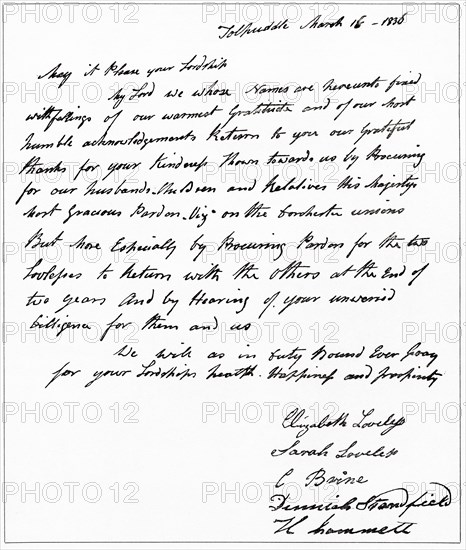 Tolpuddle March 16 - 1836
May it Please your Lordship
My Lord we whose Names are hereunto fixed
with feelings of our warmest Gratitude and of our most
humble acknowledgements Return to you our Grateful
thanks for your Kindness Shown towards us by Procuring
for our husbands - Children and Relatives His Majestys
most Gracious Pardon - Viz - on the Dorchester unions
But More Especially by Procuring Pardon for the two
Lovelesses to Return with the others at the End of
two years And by Hearing of your unwearied
Dilligence for them and us
We will as in Duty Bound Ever Pray
for your Lordships health - Happiness and prosperity
Elizabeth Loveless
Sarah Loveless
C Brine
Dinniah Standfield
H hammett
PHOTO 12